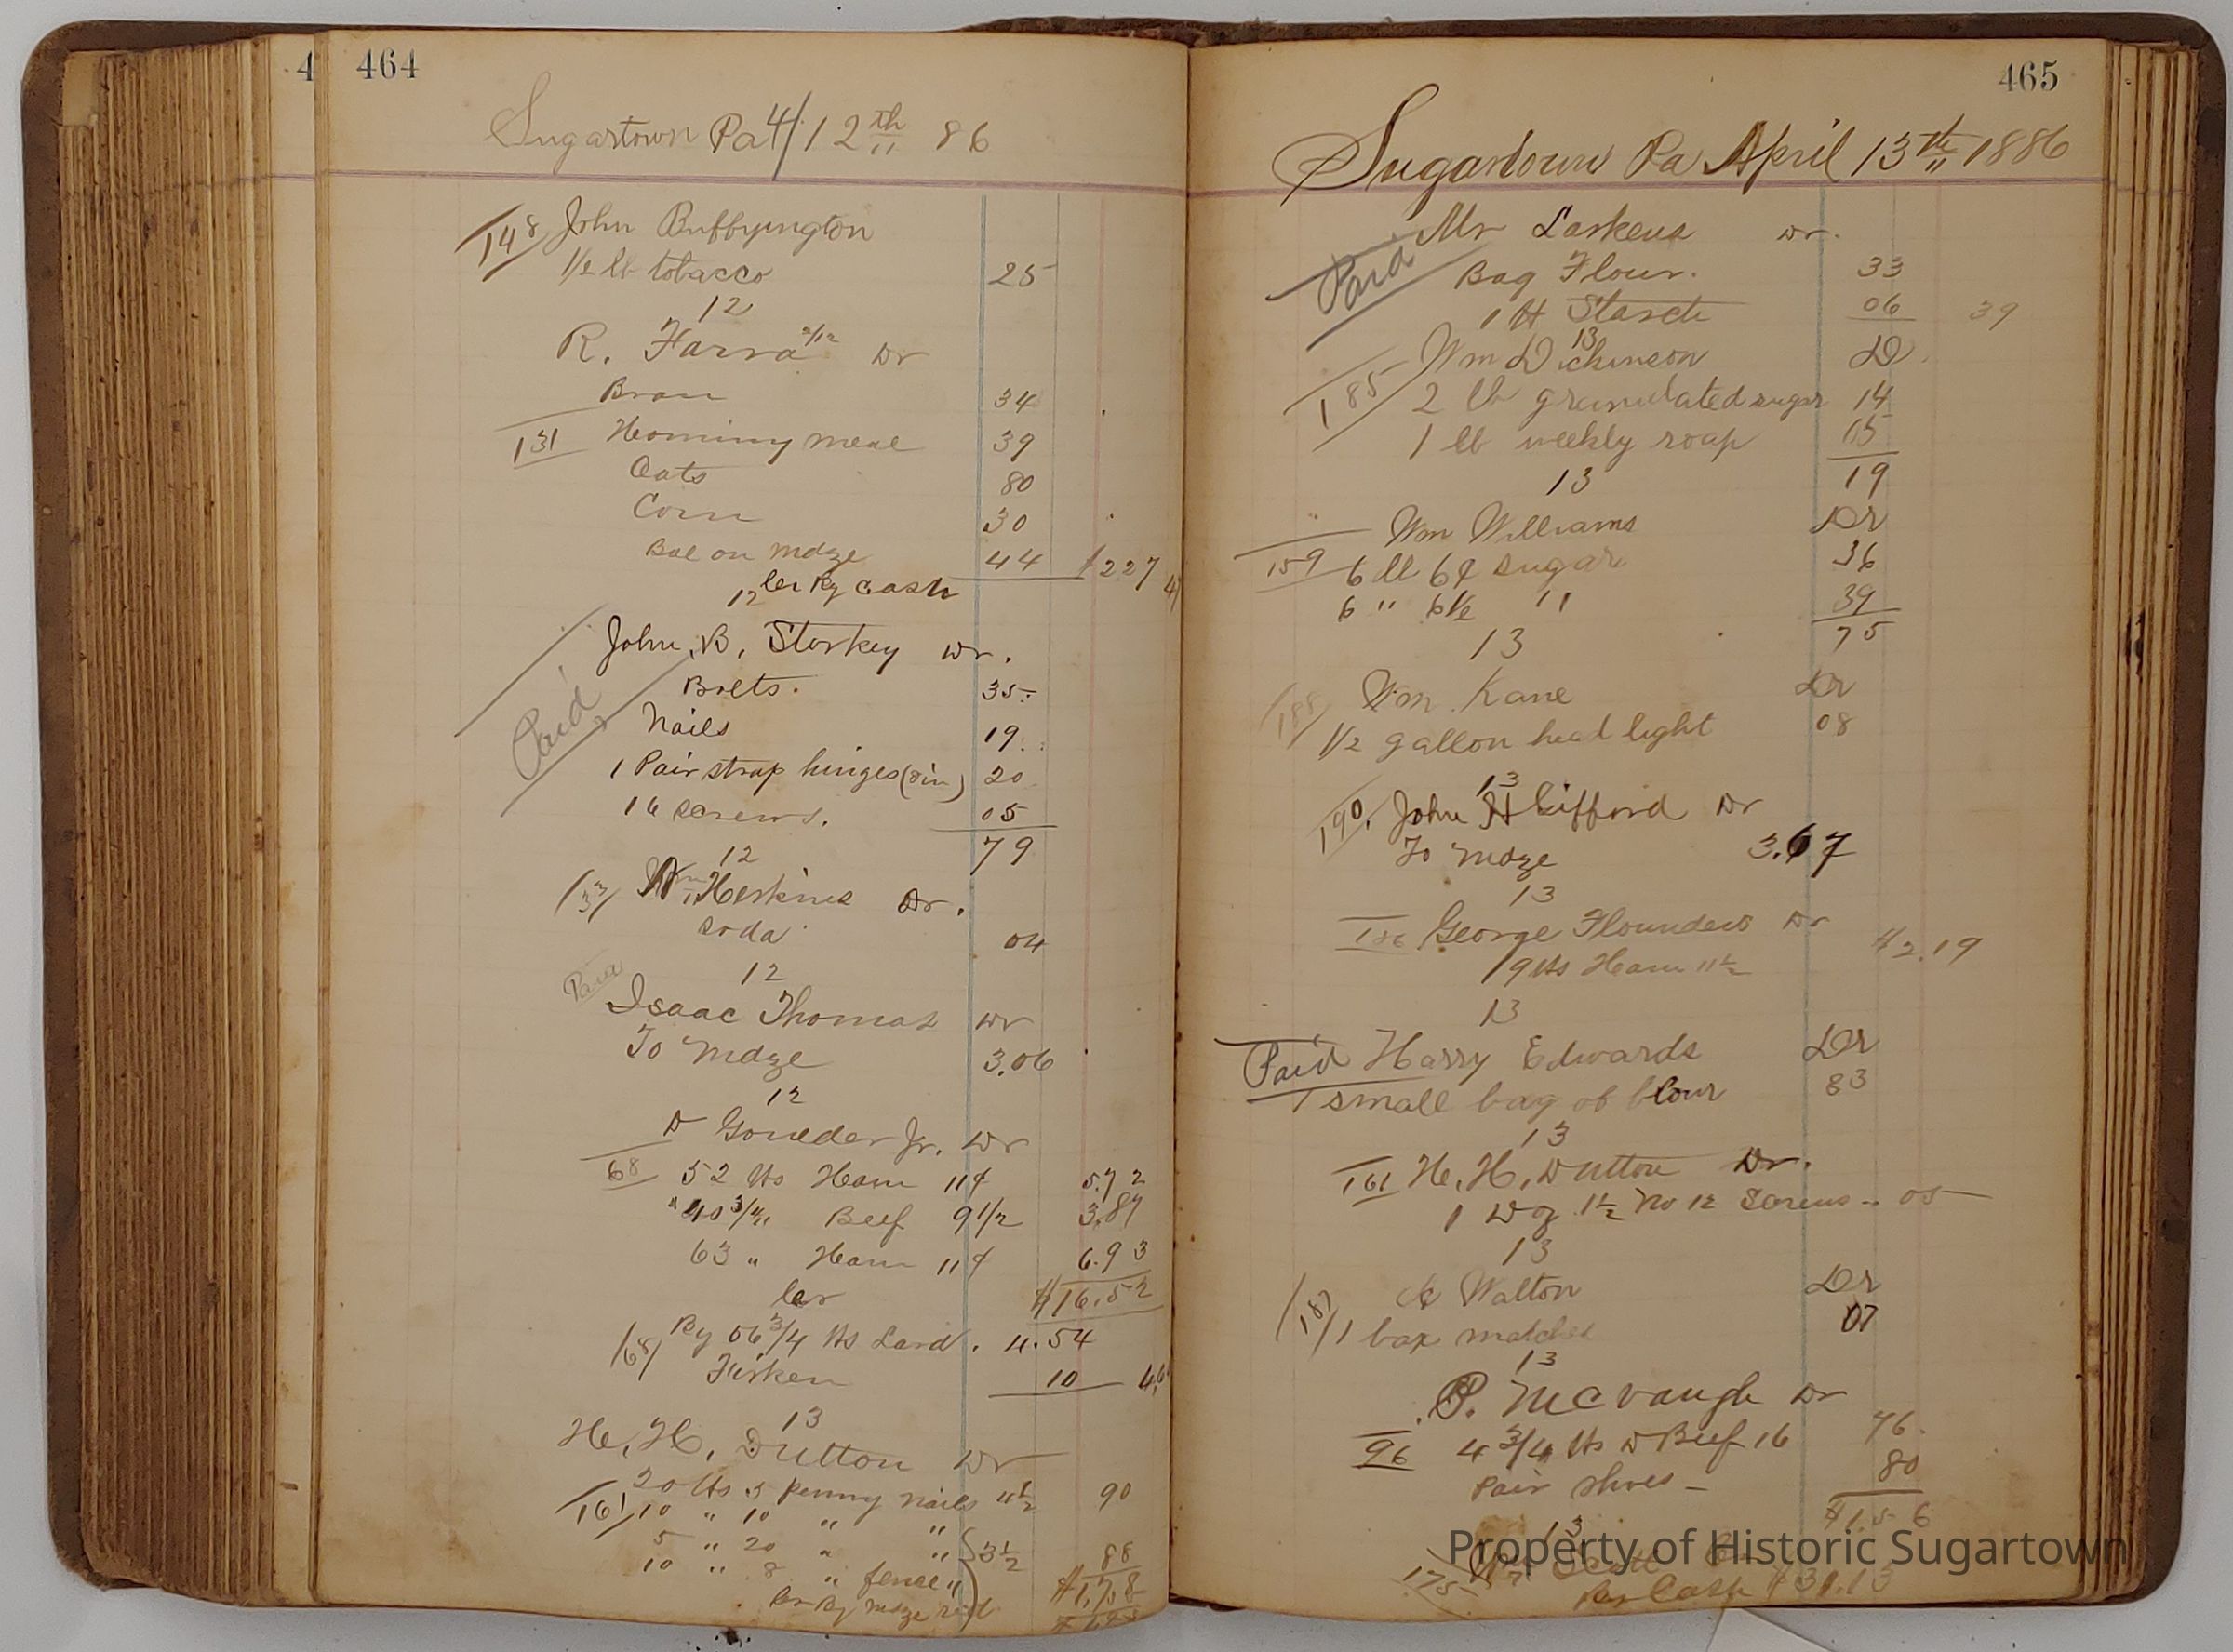 4
464
Sugartown Pa 4/12th 86
148 John Buffyington
1/2 lb tobacco 25
12
R. Farra 4/12 Dr
Bran 34
131 Hominy meal 39
Oats 80
Corn 30
Bal on mdze 44 $227
12 Cr By Cash
John B. Storkey Dr.
Paid
Bolts. 35
Nails 19
1 Pair strap hinges (8in) 20
16 screws. 05
79
12
133 Wm Heskins Dr.
Soda 04
12
Paid
Isaac Thomas Dr
To mdze 3.06
12
D Goweder Jr. Dr
68 52 lbs Ham 11¢ 5.72
" 40 3/4 " Beef 9 1/2 3.87
63 " Ham 11¢ 6.93
Cr $16.52
168 By 56 3/4 lbs Lard. 4.54
Firken 10 4.6
13
H. H. Dutton Dr
20 lbs 3 penny nails 4 1/2 90
161 10 " 10 " "
5 " 20 " " 3 1/2
10 " 8 " fence " 88
Cr By mdze $1.78
465
Sugartown Pa April 13th 1886
Mr Larkens Dr.
Paid
Bag Flour. 33
1 lb Starch 06 39
13
185 Wm Dickinson D
2 lb granulated sugar 14
1 lb weekly soap 05
13 19
Wm Williams Dr
159 6 lb 6¢ sugar 36
6 " 6 1/2 " 39
13 75
188 Wm. Kane Dr
1/2 gallon head light 08
13
190. John H Gifford Dr
To mdze 3.67
13
186 George Flounders Dr
19 lbs Ham 11 1/2 $2.19
13
Paid Harry Edwards Dr
1 small bag of flour 83
13
161 H. H. Dutton Dr.
1 Doz 1 1/2 No 12 Screws - 05
13
187 Walton Dr
1 box matches 07
13
P. McVaugh Dr
96 4 3/4 lbs D Beef 16 76
Pair shoes - 80
$1.56
13
175 Scott Cr
By Cash $31.13
Property of Historic Sugartown